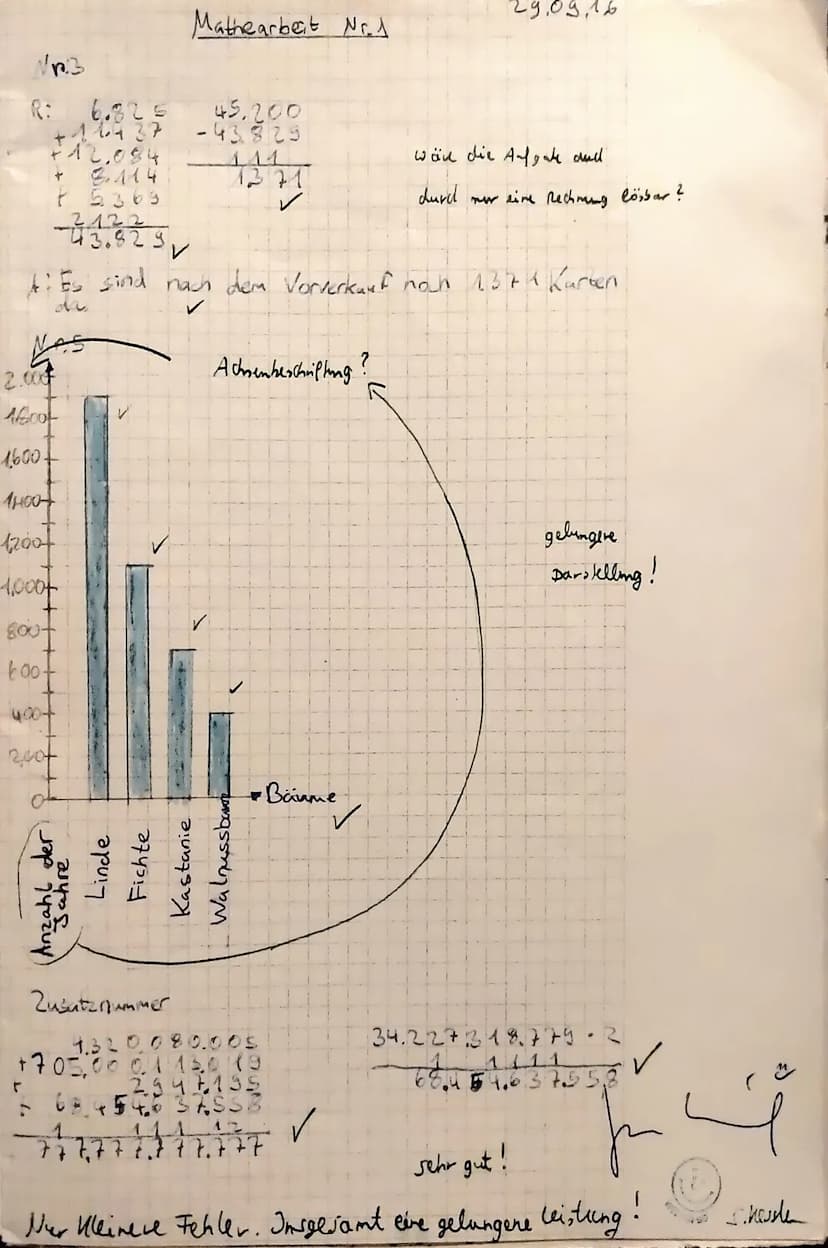 29.09.16
Mathearbeit Nr.1
Nr.3
R: 6.825 45.200
+11.437 -43.829
+12.084 111
+ 8.114 1371
+ 5.369
2122
43.829
wäre die Aufgabe auch
durch nur eine Rechnung lösbar?
A: Es sind nach dem Vorverkauf noch 1371 Karten
da.
Nr.5
Achsenbeschriftung?
2.000
1.800
1.600
1.400
1.200
1.000
800
600
400
200
0
gelungene
Darstellung!
Bäume
Anzahl der
Jahre
Linde
Fichte
Kastanie
Walnussbaum
Zusatznummer
4.320.080.005 34.227.318.779 · 2
+705.000.115.019 1 1111
+ 2947.195 68.454.637.558
+ 68.454.637.558
1 111 12
777.777.777.777
sehr gut!
Nur kleinere Fehler. Insgesamt eine gelungene Leistung!